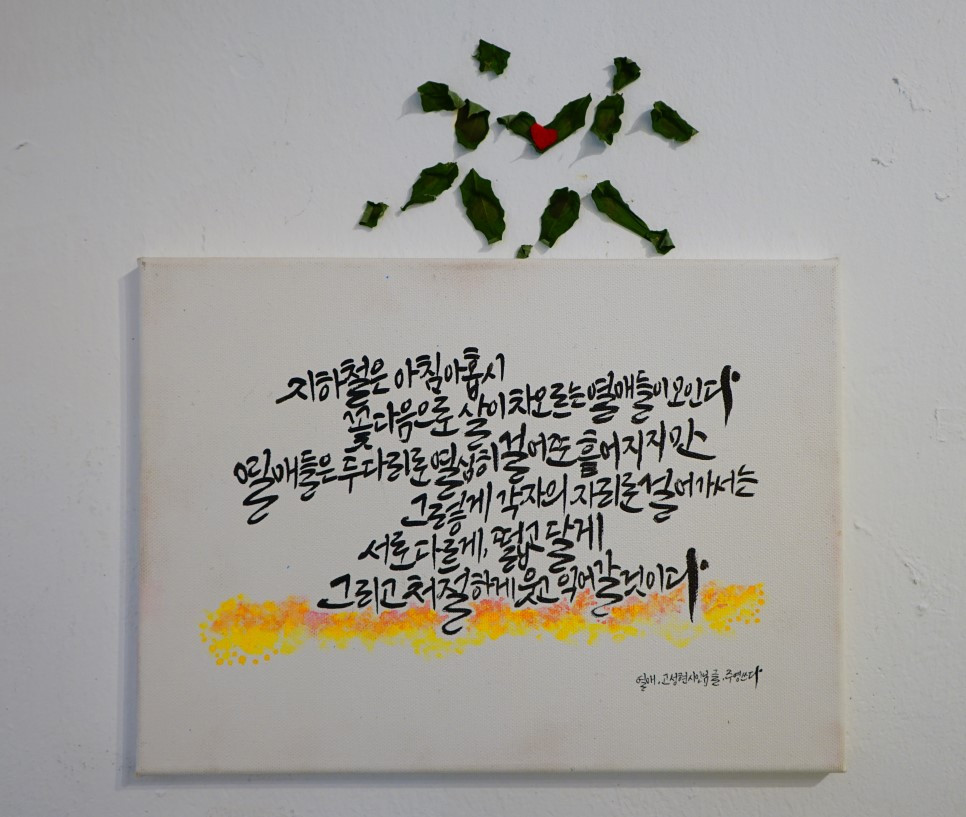 지하철은 아침아홉시
꽃다음으로 살이차오르는 열매들이모인다
열매들은 두다리로 열심히 걸어준 흩어지지만
그렇게 각자의 자리로 걸어가서는
서로다르게, 떫고 달게
그리고 처절하게 웃고 익어갈것이다
열매, 고성현시인님 글, 주영쓰다